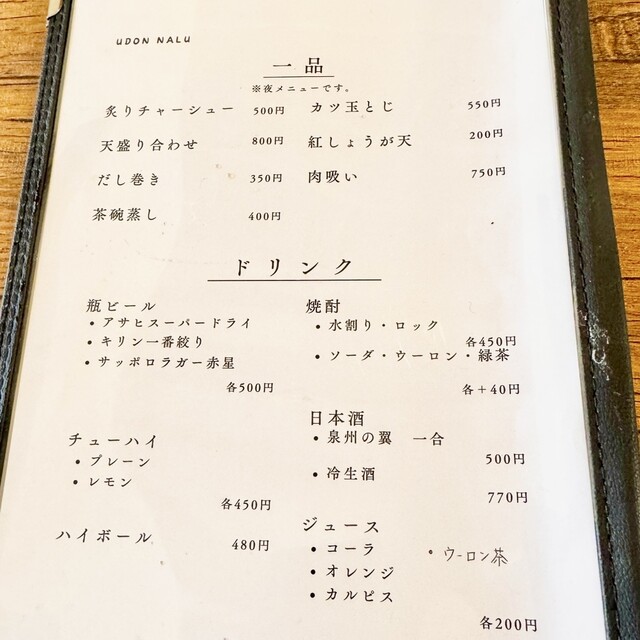 UDON NALU
一品
※夜メニューです。
炙りチャーシュー 500円 カツ玉とじ 550円
天盛り合わせ 800円 紅しょうが天 200円
だし巻き 350円 肉吸い 750円
茶碗蒸し 400円
ドリンク
瓶ビール
・アサヒスーパードライ
・キリン一番絞り
・サッポロラガー赤星
各500円
チューハイ
・プレーン
・レモン
各450円
ハイボール 480円
焼酎
・水割り・ロック
各450円
・ソーダ・ウーロン・緑茶
各+40円
日本酒
・泉州の翼 一合
500円
・冷生酒
770円
ジュース
・コーラ ・ウーロン茶
・オレンジ
・カルピス
各200円